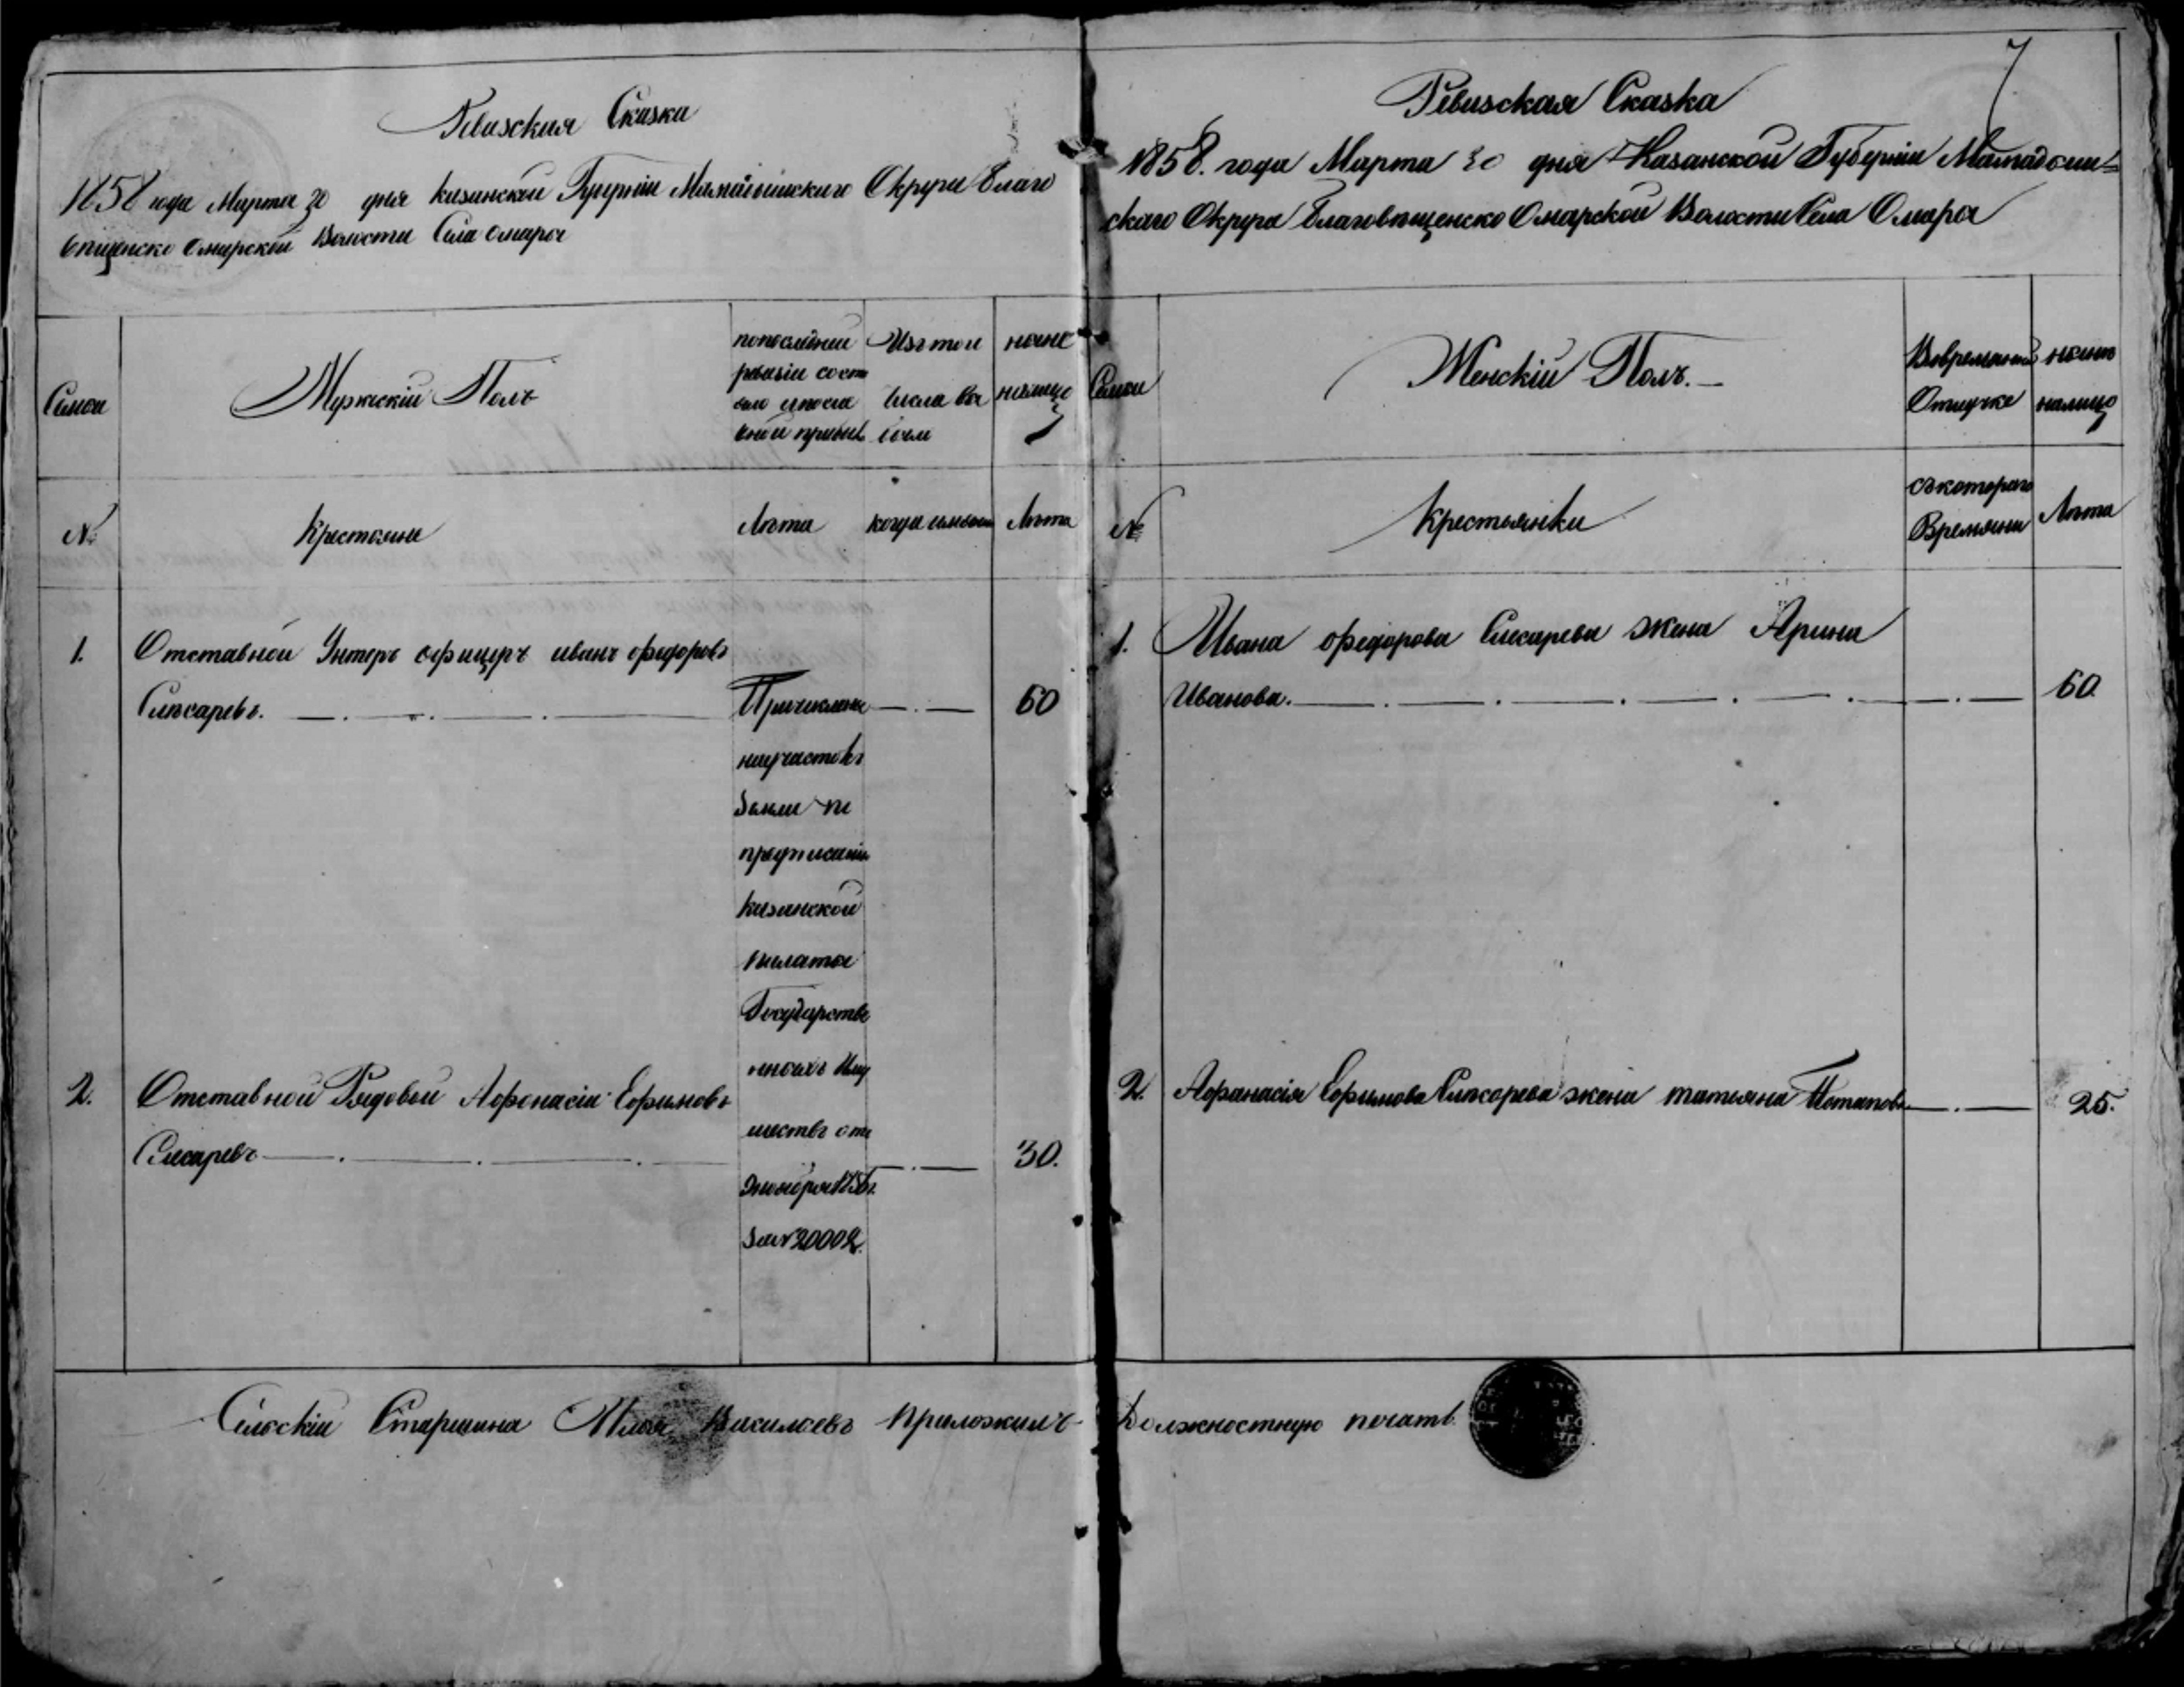 Ревизская Сказка
1858 года Марта 30 дня Казанской Губернии Мамадышскаго Округа Благо
вещенско Омарской Волости Села Омары
Семьи
Мужский Полъ
по последней
ревизии сост
ояло и после
оной прибыло
Изъ того
числа вы
было
ныне
на лицо
№
Крестьяне
Лета
когда именно
Лета
1.
Отставной Унтеръ офицеръ иванъ федоровъ
Слесаревъ.
Причислены
60
на участокъ
Земли по
предписанию
Казанской
палаты
Государстве
нныхъ Иму
ществъ отъ
за № 20002.
2.
Отставной Рядовой Афонасий Ефимовъ
Слесаревъ
30.
7
Ревизская Сказка
1858. года Марта 30 дня Казанской Губернии Мамадыш-
скаго Округа Благовещенско Омарской Волости Села Омары
Семьи
Женскій Полъ.
Во временной
Отлучке
ныне
на лицо
№
Крестьянки
съ котораго
Времяни
Лета
1.
Ивана федорова Слесарева жена Арина
Иванова.
60.
2.
Афанасія Ефимова Слесарева жена татьяна Потапова
25.
Сельскій Старшина Илья Васильевъ приложилъ Должностную печать